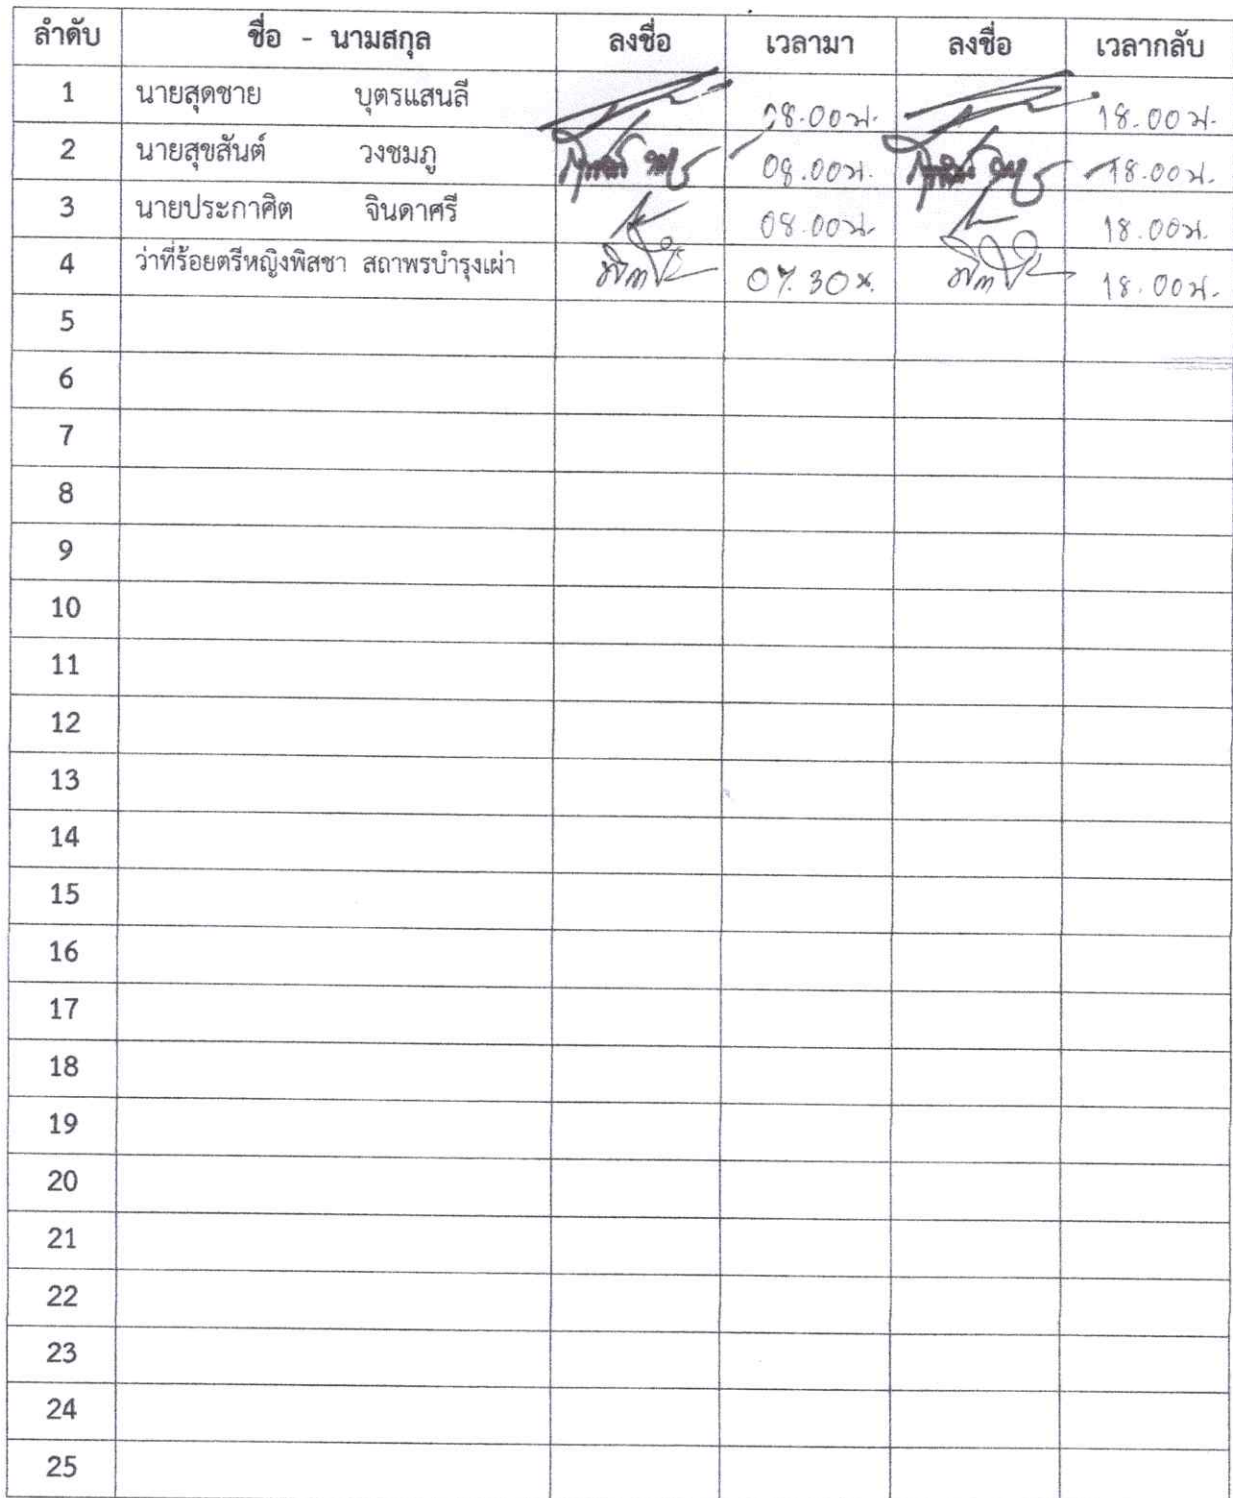 ลำดับ ชื่อ - นามสกุล ลงชื่อ เวลามา ลงชื่อ เวลากลับ
1 นายสุดชาย บุตรแสนลี 08.00น. 18.00น.
2 นายสุขสันต์ วงชมภู 08.00น. 18.00น.
3 นายประกาศิต จินดาศรี 08.00น. 18.00น.
4 ว่าที่ร้อยตรีหญิงพิสชา สถาพรบำรุงเผ่า 07.30น. 18.00น.
5
6
7
8
9
10
11
12
13
14
15
16
17
18
19
20
21
22
23
24
25